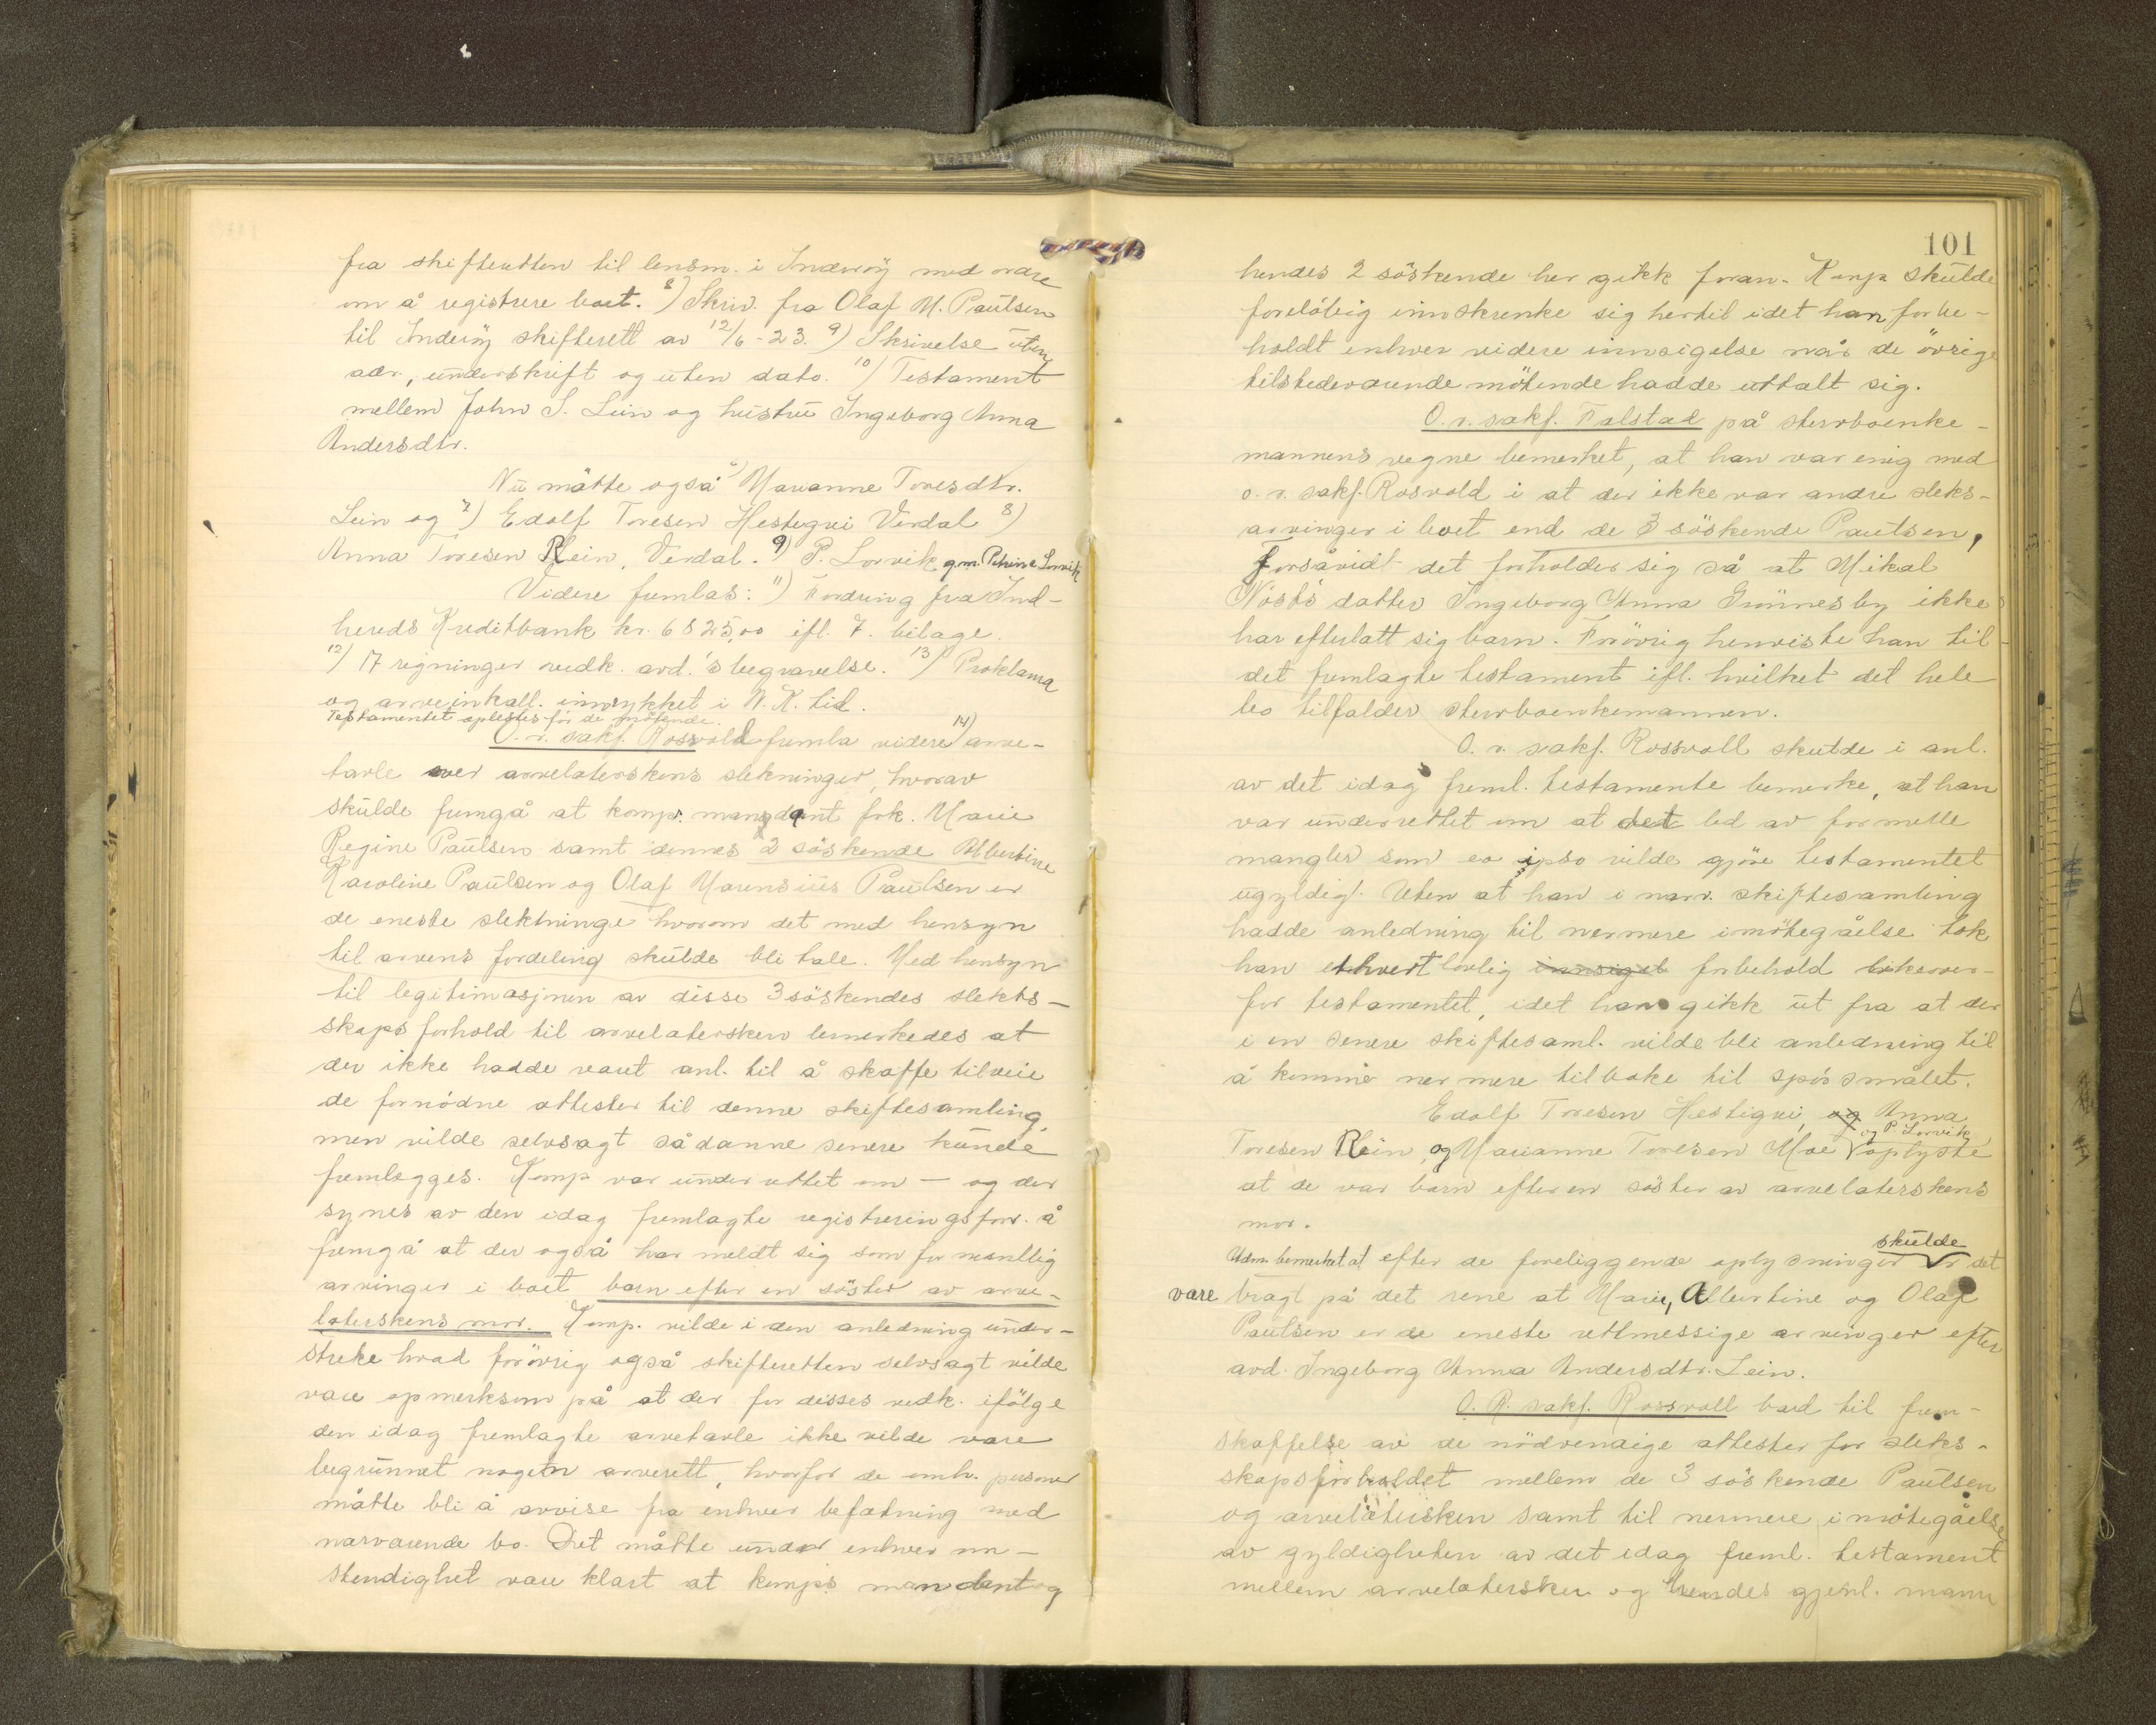 fra skifteretten til lensm. i Inderøy med ordre
om å registrere boet. 8) Skriv. fra Olaf M. Paulsen
til Inderøy skifterett av 12/6-23. 9) Skrivelse uten
adr., underskrift og uten dato. 10) Testament
mellem John S. Lein og hustru Ingeborg Anna
Andersdtr.
Nu møtte også Marianne Toresdtr.
Lein og 7) Edolf Toresen Hestegrei Verdal 8)
Anna Toresen Rein, Verdal. 9) P. Lorvik g.m. Petrine Lorvik
Videre fremlas: 11) Fordring fra Ind-
hereds Kreditbank kr. 6825,00 ifl. 7. bilage.
12) 17 regninger vedk. avd.'s begravelse. 13) Proklama
og arveinkall. innrykket i N. K. tid.
Testamentet oplestes for de møtende.
O. r. sakf. Rossvold fremla videre 14) arve-
tavle over arvelaterskens slektninger, hvorav
skulde fremgå at komp. mandant frk. Marie
Regine Paulsen samt dennes 2 söskende Albertine
Karoline Paulsen og Olaf Marensius Paulsen er
de eneste slektninge hvorom det med hensyn
til arvens fordeling skulde bli tale. Med hensyn
til legitimasjonen av disse 3 söskendes slekts-
skaps forhold til arvelatersken bemerkedes at
der ikke hadde vært anl. til å skaffe tilveie
de fornödne attester til denne skiftesamling,
men vilde selvsagt sådanne senere kunde
fremlegges. Komp var underrettet om - og der
synes av den idag fremlagte registreringsforr. å
fremgå at der også har meldt sig som formentlig
arvinger i boet barn efter en söster av arve-
laterskens mor. Komp. vilde i den anledning under-
streke hvad forövrig også skifteretten selvsagt vilde
være opmerksom på at der for disses vedk. ifölge
den idag fremlagte arvetavle ikke vilde være
begrunnet nogen arverett, hvorfor de omh. personer
måtte bli å avvise fra enhver befatning med
nærværende bo. Det måtte under enhver om-
stendighet være klart at komps mandant og
101
hendes 2 söskende her gikk foran. Komp skulde
forelöbig innskrenke sig hertil idet han forbe-
holdt enhver videre innsigelse når de övrige
tilstedeværende mötende hadde uttalt sig.
O. r. sakf. Falstad på sterrboenke-
mannens vegne bemerket, at han var enig med
o. r. sakf. Rosvold i at der ikke var andre sleks-
arvinger i boet end de 3 söskende Paulsen,
forsåvidt det forholder sig så at Mikal
Nösts datter Ingeborg Anna Grönnesby ikke
har efterlatt sig barn. Forövrig henviste han til
det fremlagte testament ifl. hvilket det hele
bo tilfalder sterrboenkemannen.
O. r. sakf. Rossvoll skulde i anl.
av det idag freml. testamente bemerke, at han
var underrettet om at det led av formelle
mangler som eo ipso vilde gjöre testamentet
ugyldig. Uten at han i nærv. skiftesamling
hadde anledning til nermere imötegåelse tok
han ethvert lovlig innsigel forbehold likeover-
for testamentet, idet han gikk ut fra at der
i en senere skiftesaml. vilde bli anledning til
å komme nermere tilbake til spörsmålet.
Edolf Toresen Hestigrei, og Anna
Toresen Rein, og Marianne Toresen Moe og P. Lorvik oplyste
at de var barn efter en söster av arvelaterskens
mor.
Adm. bemerket at efter de foreliggende oplysninger skulde det
være bragt på det rene at Marie, Albertine og Olaf
Paulsen er de eneste rettmessige arvinger efter
avd. Ingeborg Anna Andersdtr. Lein.
O. R. sakf. Rossvoll bad til frem-
skaffelse av de nödvendige attester for sleks-
skapsforholdet mellem de 3 söskende Paulsen
og arvelatersken samt til nermere imötegåelse
av gyldigheten av det idag freml. testament
mellem arvelatersken og hendes gjenl. mann